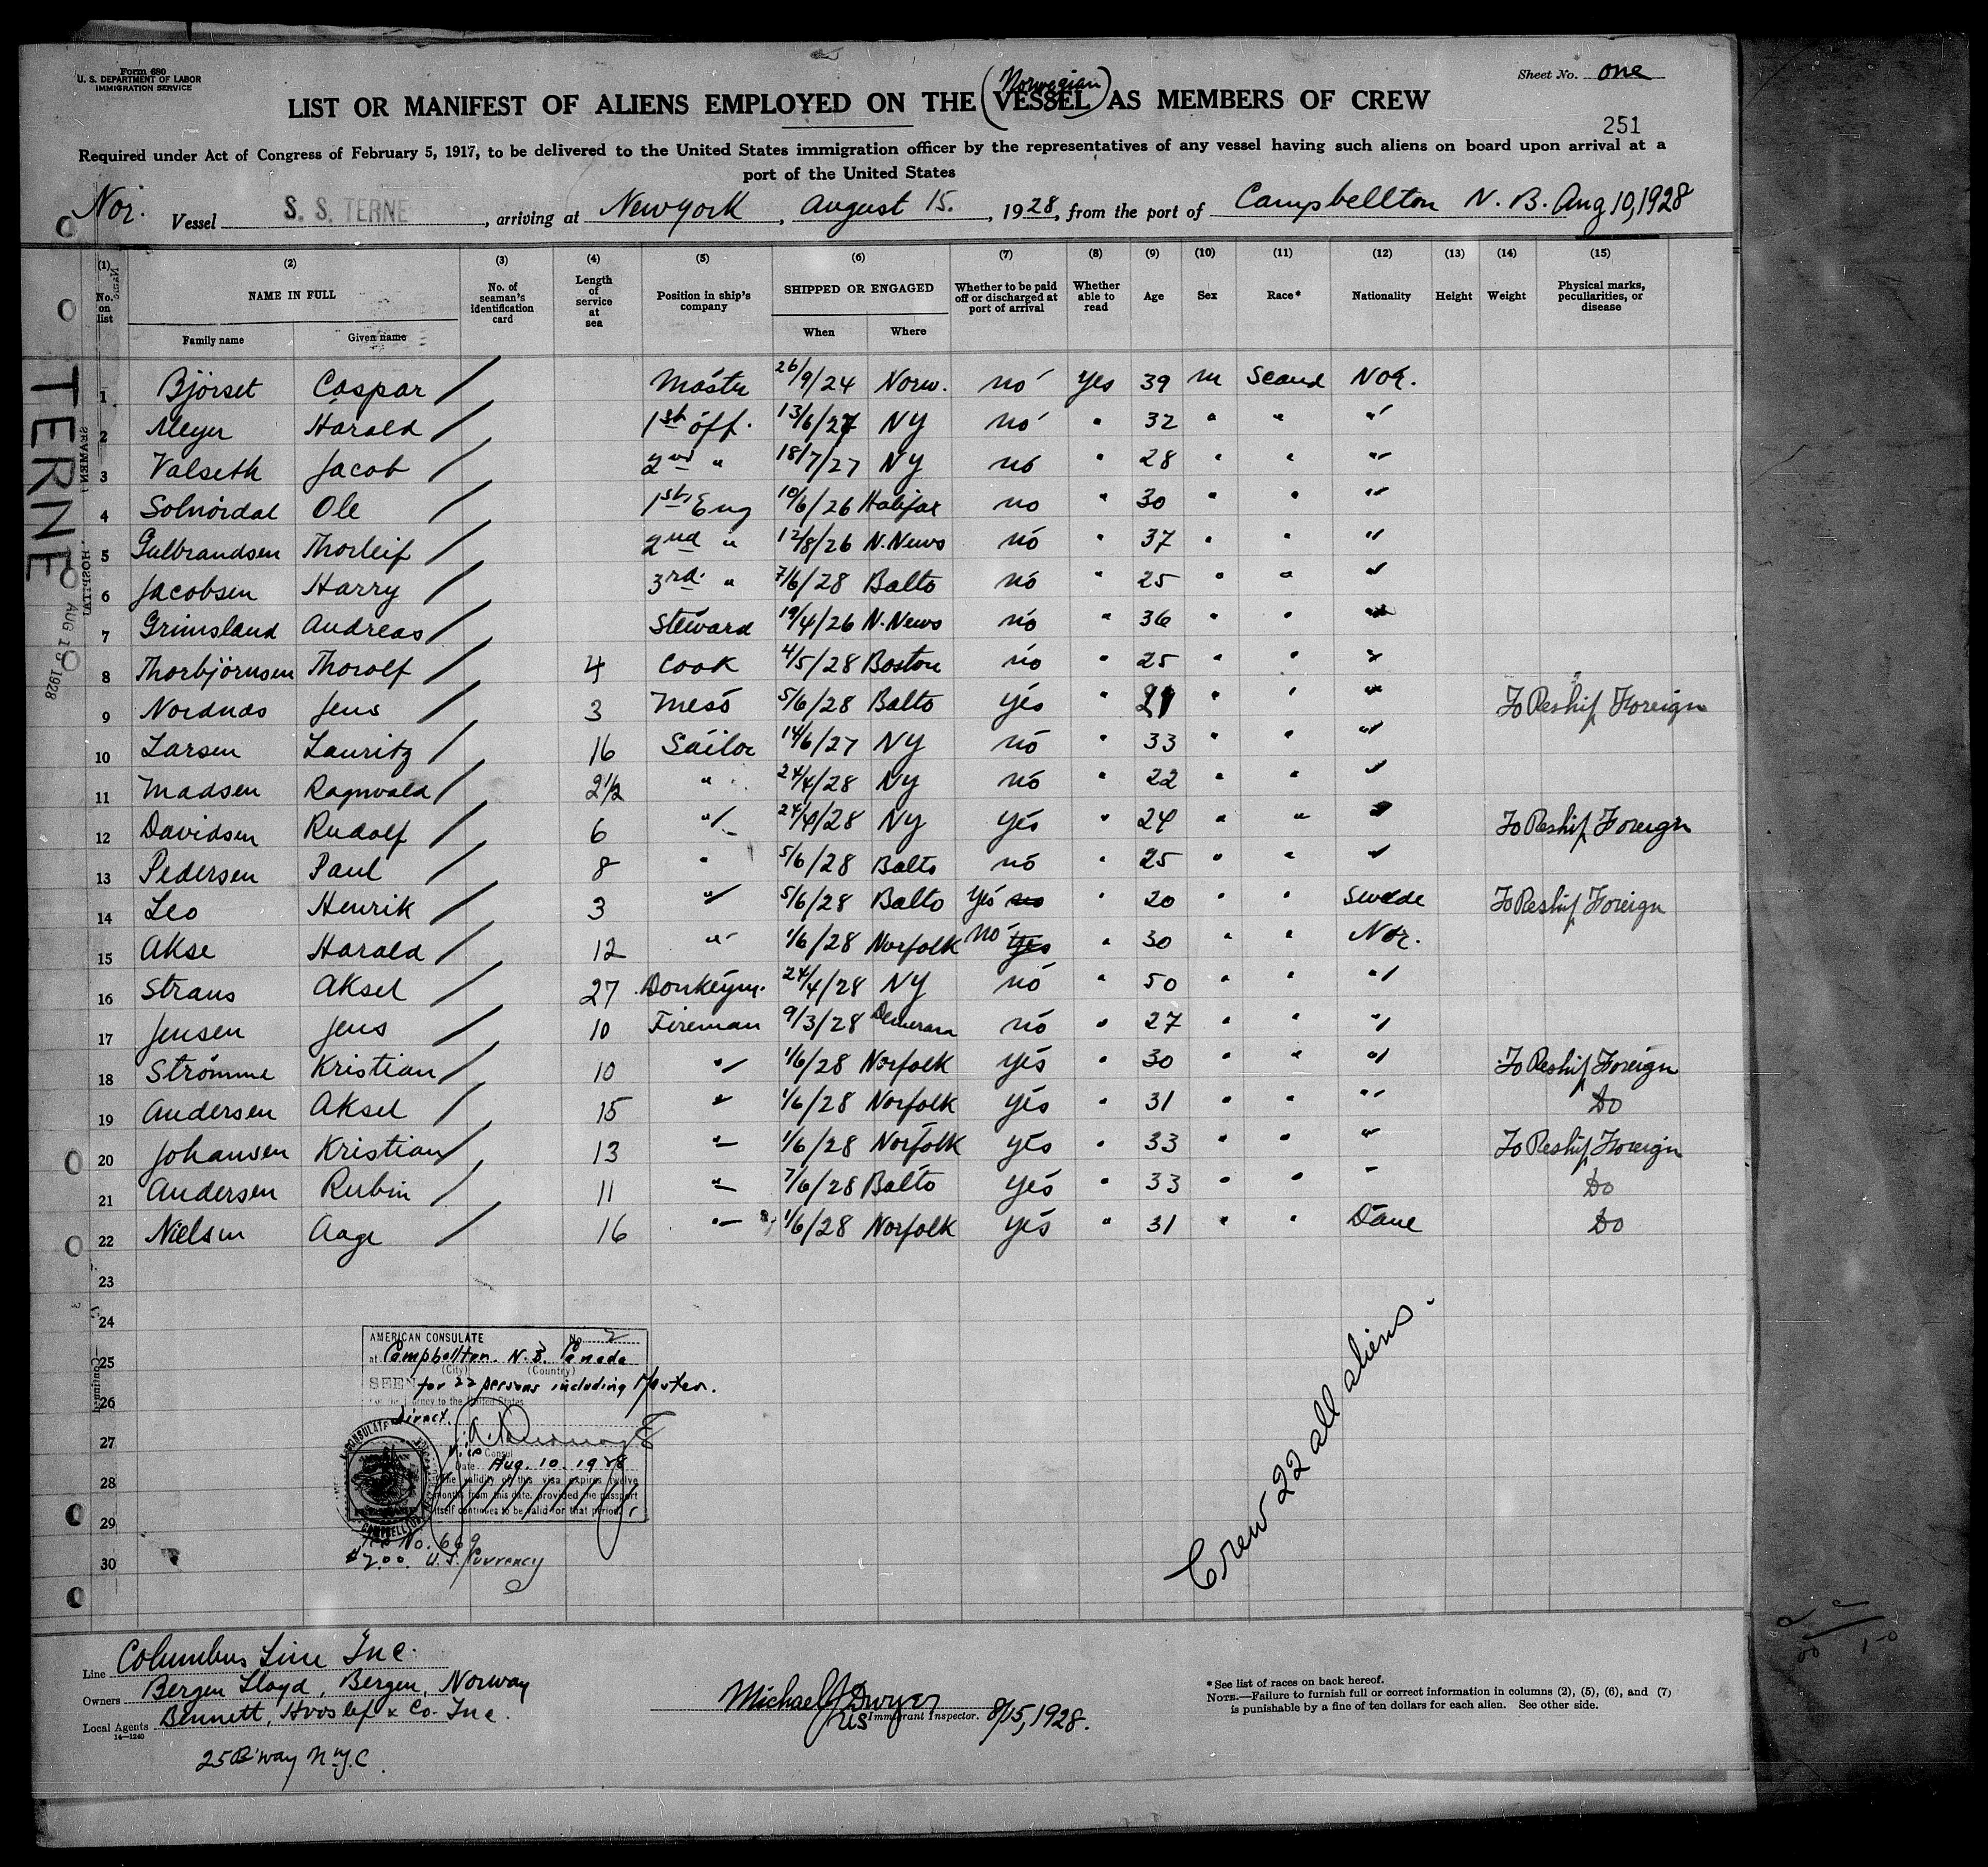 Form 680
U. S. DEPARTMENT OF LABOR
IMMIGRATION SERVICE
Sheet No. one
Norwegian
LIST OR MANIFEST OF ALIENS EMPLOYED ON THE (VESSEL) AS MEMBERS OF CREW
251
Required under Act of Congress of February 5, 1917, to be delivered to the United States immigration officer by the representatives of any vessel having such aliens on board upon arrival at a
port of the United States
Nor. Vessel S. S. TERNE, arriving at New York, August 15., 1928, from the port of Campbellton N. B. Aug 10, 1928
(1) (2) (3) (4) (5) (6) (7) (8) (9) (10) (11) (12) (13) (14) (15)
No. on list NAME IN FULL No. of seaman's identification card Length of service at sea Position in ship's company SHIPPED OR ENGAGED Whether to be paid off or discharged at port of arrival Whether able to read Age Sex Race* Nationality Height Weight Physical marks, peculiarities, or disease
Family name Given name When Where
1 Bjørset Caspar / Master 26/9/24 Norw. no Yes 39 m Scand Nor.
2 Meyer Harald / 1st off. 13/6/27 NY no " 32 " " "
3 Valseth Jacob / 2nd " 18/7/27 NY no " 28 " " "
4 Solnördal Ole / 1st Eng 10/6/26 Halifax no " 30 " " "
5 Gulbrandsen Thorleif / 2nd " 12/8/26 N. News no " 37 " " "
6 Jacobsen Harry / 3rd. " 7/6/28 Balto no " 25 " " "
7 Grimsland Andreas / Steward 19/4/26 N. News no " 36 " " "
8 Thorbjörnsen Thorolf / 4 Cook 4/5/28 Boston no " 25 " " "
9 Nordnas Jens / 3 Mess 5/6/28 Balto yes " 21 " " " To Reship Foreign
10 Larsen Lauritz / 16 Sailor 14/6/27 NY no " 33 " " "
11 Madsen Ragnvald / 2½ " 24/4/28 NY no " 22 " " "
12 Davidsen Rudolf / 6 " 24/4/28 NY yes " 24 " " " To Reship Foreign
13 Pedersen Paul / 8 " 5/6/28 Balto no " 25 " " "
14 Leo Henrik / 3 " 5/6/28 Balto yes no " 20 " " Swede To Reship Foreign
15 Akse Harald / 12 " 1/6/28 Norfolk no yes " 30 " " Nor.
16 Straus Aksel / 27 Donkeym. 24/4/28 NY no " 50 " " "
17 Jensen Jens / 10 Fireman 9/3/28 Demerara no " 27 " " "
18 Strømme Kristian / 10 " 1/6/28 Norfolk yes " 30 " " " To Reship Foreign
19 Andersen Aksel / 15 " 1/6/28 Norfolk yes " 31 " " " Do
20 Johansen Kristian / 13 " 1/6/28 Norfolk yes " 33 " " " To Reship Foreign
21 Andersen Rubin / 11 " 7/6/28 Balto yes " 33 " " " Do
22 Nielsen Aage / 16 " 1/6/28 Norfolk yes " 31 " " Dane Do
23
24
25
26
27
28
29
30
TERNE
AUG 15 1928
AMERICAN CONSULATE No. 2
at Campbellton. N. B. Canada
(City) (Country)
SEEN for 22 persons including Master.
direct.
Vice Consul
Date Aug. 10. 1928
The validity of this visa expires twelve
months from this date, provided the passport
itself continues to be valid for that period.
No. 669
$2.00. U. S. Currency
Crew 22 all aliens.
Line Columbus Line Inc.
Owners Bergen Lloyd, Bergen, Norway
Local Agents Bennett, Hvoslef & Co. Inc.
14—1240
25 B'way N.Y.C.
Michael J Dwyer
US Immigrant Inspector. 8/15, 1928.
* See list of races on back hereof.
NOTE.—Failure to furnish full or correct information in columns (2), (5), (6), and (7)
is punishable by a fine of ten dollars for each alien. See other side.